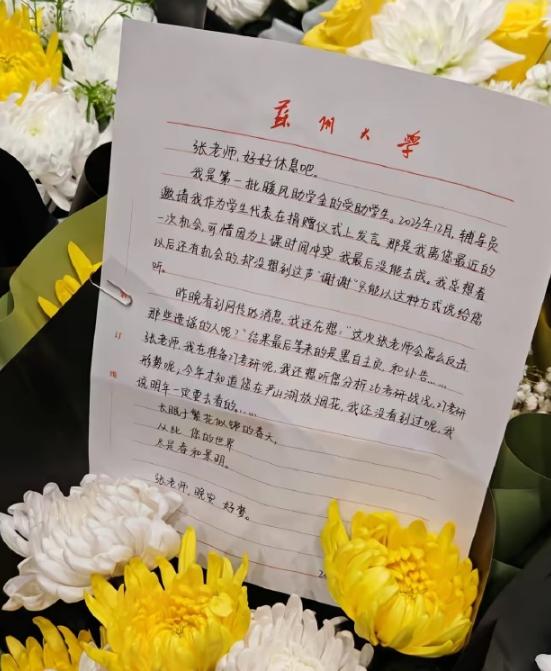 蘇州大學
张老师,好好休息吧。
我是第一批暖风助学金的受助学生。2023年12月,辅导员
邀请我作为学生代表在捐赠仪式上发言,那是我离您最近的
一次机会,可惜因为上课时间冲突,我最后没能去成。我总想着
以后还有机会的,却没想到这声“谢谢”只能以这种方式说给您
听。
昨晚看到网传的消息,我还在想,“这次张老师会怎么反击
那些造谣的人呢?”结果最后等来的是黑白主页,和讣告……
张老师,我在准备27考研呢,我还想听您分析26考研战况、27考研
形势呢,今年才知道您在尹山湖放烟花,我还没看到过呢,我
说明年一定要去看的……
长眠于繁花似锦的春天,
从此,您的世界
尽是春和景明。
张老师,晚安,好梦。
订